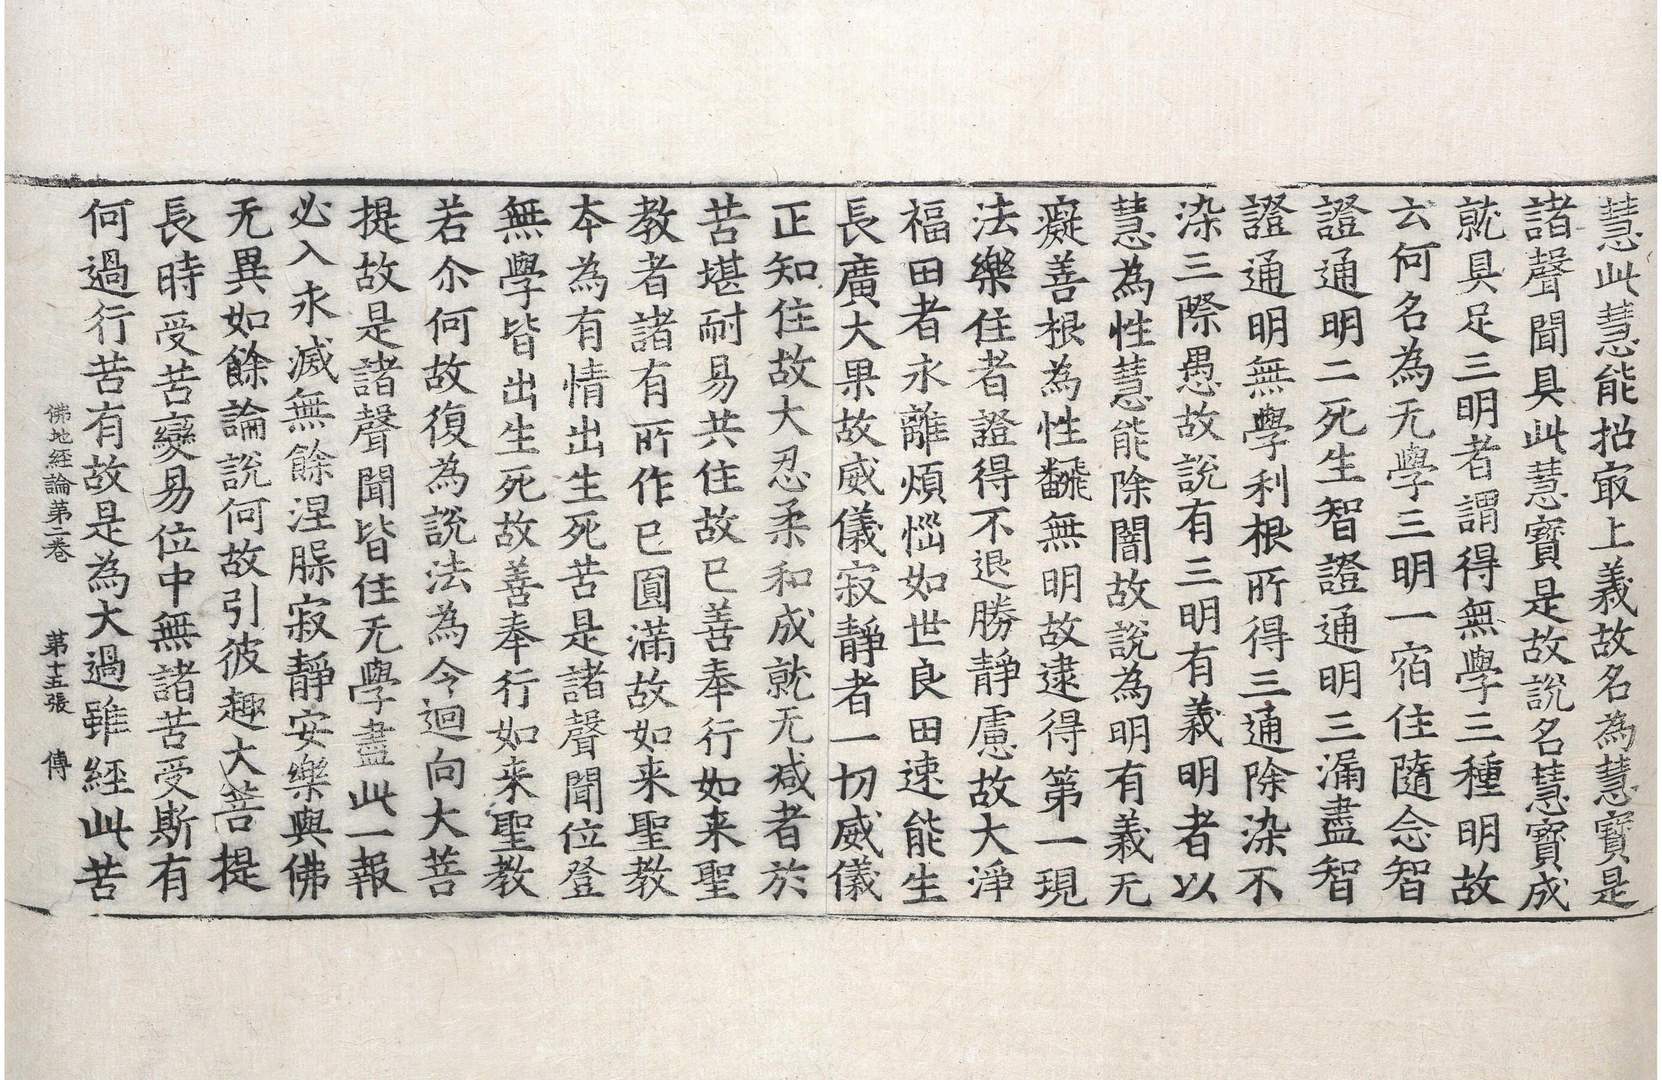 慧此慧能招㝡上義故名為慧寶是
諸聲聞具此慧寶是故說名慧寶成
就具足三明者謂得無學三種明故
云何名為无學三明一宿住隨念智
證通明二死生智證通明三漏盡智
證通明無學利根所得三通除染不
染三際愚故說有三明有義明者以
慧為性慧能除闇故說為明有義无
癡善根為性翻無明故逮得第一現
法樂住者證得不退勝靜慮故大淨
福田者永離煩惱如世良田速能生
長廣大果故威儀寂靜者一切威儀
正知住故大忍柔和成就无減者於
苦堪耐易共住故已善奉行如来聖
教者諸有所作已圓滿故如来聖教
本為有情出生死苦是諸聲聞位登
無學皆出生死故善奉行如来聖教
若尒何故復為說法為令迴向大菩
提故是諸聲聞皆住无學盡此一報
必入永滅無餘涅槃寂靜安樂與佛
无異如餘論說何故引彼趣大菩提
長時受苦變易位中無諸苦受斯有
何過行苦有故是為大過雖經此苦
佛地經論第二卷 第十五張 傳